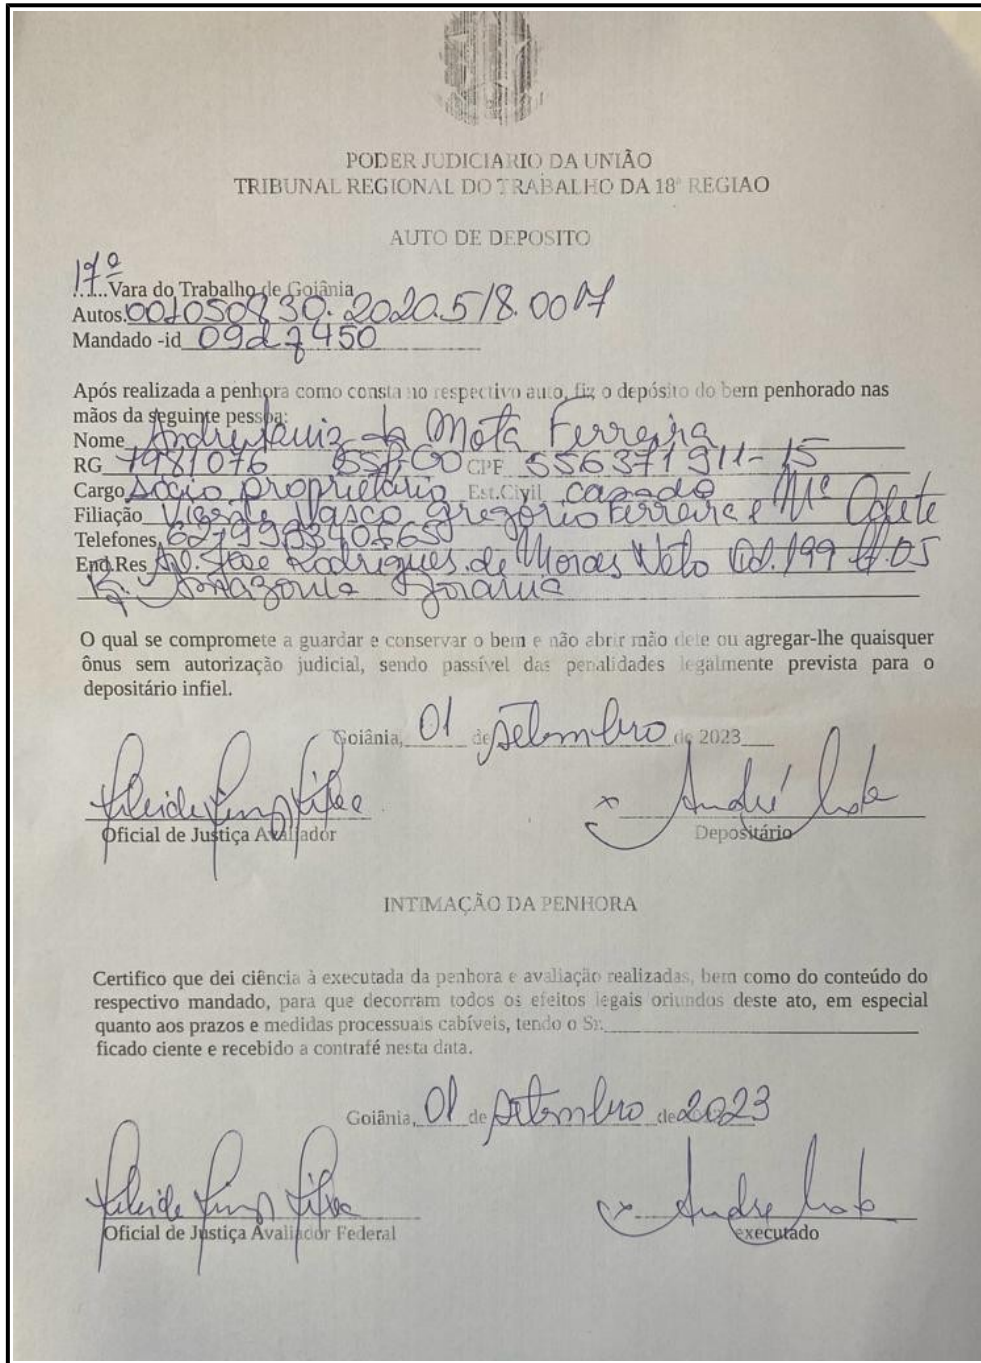 PODER JUDICIARIO DA UNIÃO
TRIBUNAL REGIONAL DO TRABALHO DA 18ª REGIAO
AUTO DE DEPOSITO
17ª
......Vara do Trabalho de Goiânia
Autos.
Mandado -id 09d7450
Após realizada a penhora como consta no respectivo auto, fiz o depósito do bem penhorado nas
mãos da seguinte pessoa:
Nome André Luiz da Mota Ferreira
RG 1981076 SSPGO CPF 556371911-15
Cargo Sócio proprietário Est.Civil casado
Filiação Vasco Gregório Ferreira e Mª Odete
Telefones
End.Res Al. José Rodrigues de Morais Neto Qd. 199 Lt. 05
Goiânia
O qual se compromete a guardar e conservar o bem e não abrir mão dele ou agregar-lhe quaisquer
ônus sem autorização judicial, sendo passível das penalidades legalmente prevista para o
depositário infiel.
Goiânia, 01 de setembro de 2023
Oficial de Justiça Avaliador
x André Depositário
INTIMAÇÃO DA PENHORA
Certifico que dei ciência à executada da penhora e avaliação realizadas, bem como do conteúdo do
respectivo mandado, para que decorram todos os efeitos legais oriundos deste ato, em especial
quanto aos prazos e medidas processuais cabíveis, tendo o Sr.
ficado ciente e recebido a contrafé nesta data.
Goiânia, 01 de setembro de 2023
Oficial de Justiça Avaliador Federal
x Andre executado